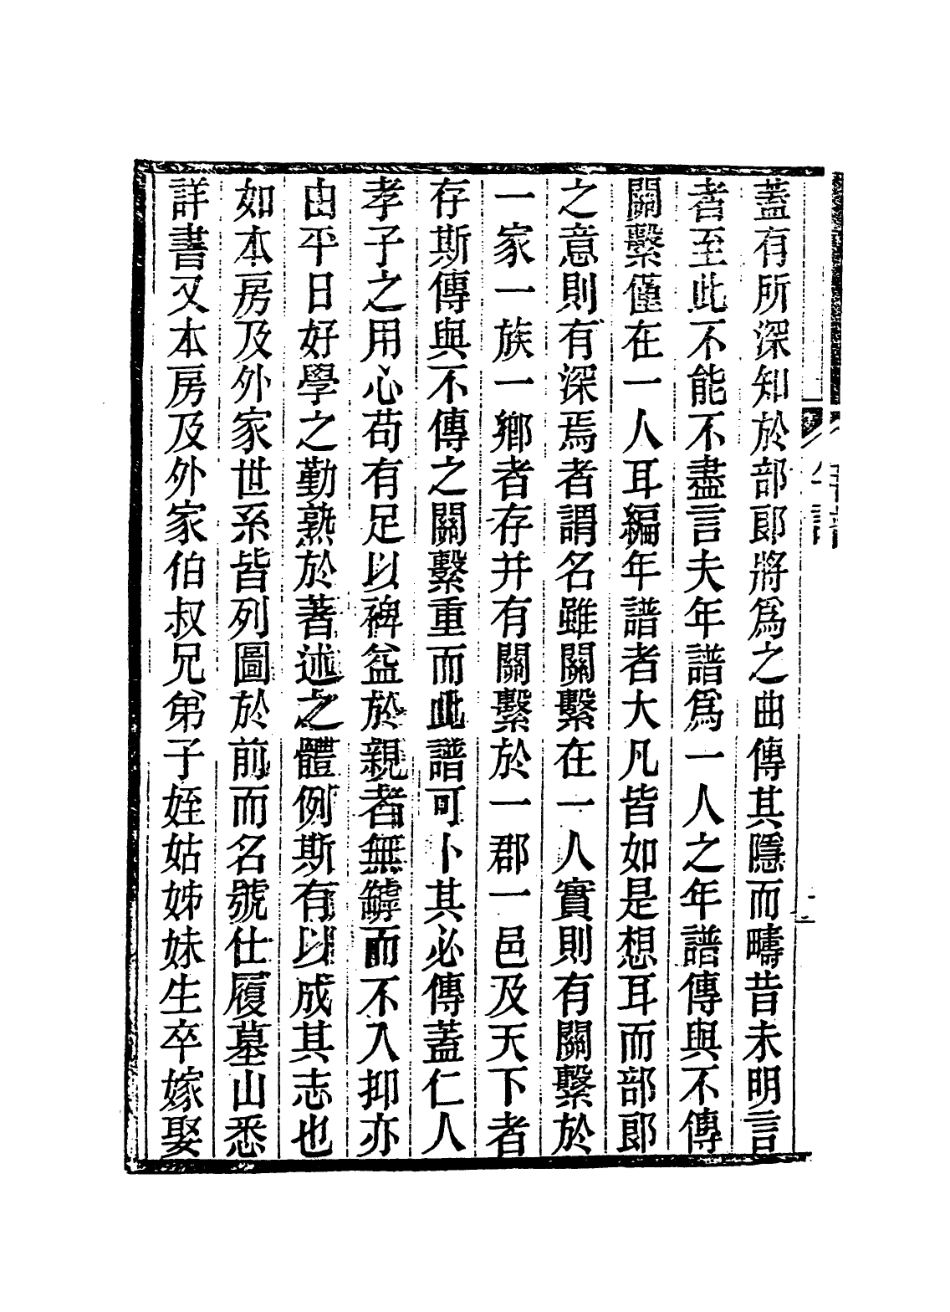 蓋有所深知於部郎將爲之曲傳其隱而疇昔未明言
者至此不能不盡言夫年譜爲一人之年譜傳與不傳
關繫僅在一人耳編年譜者大凡皆如是想耳而部郎
之意則有深焉者謂名雖關繫在一人實則有關繫於
一家一族一鄉者存并有關繫於一郡一邑及天下者
存斯傳與不傳之關繫重而此譜可卜其必傳蓋仁人
孝子之用心苟有足以裨益於親者無罅而不入抑亦
由平日好學之勤熟於著述之體例斯有以成其志也
如本房及外家世系皆列圖於前而名號仕履墓山悉
詳書又本房及外家伯叔兄弟子姪姑姊妹生卒嫁娶